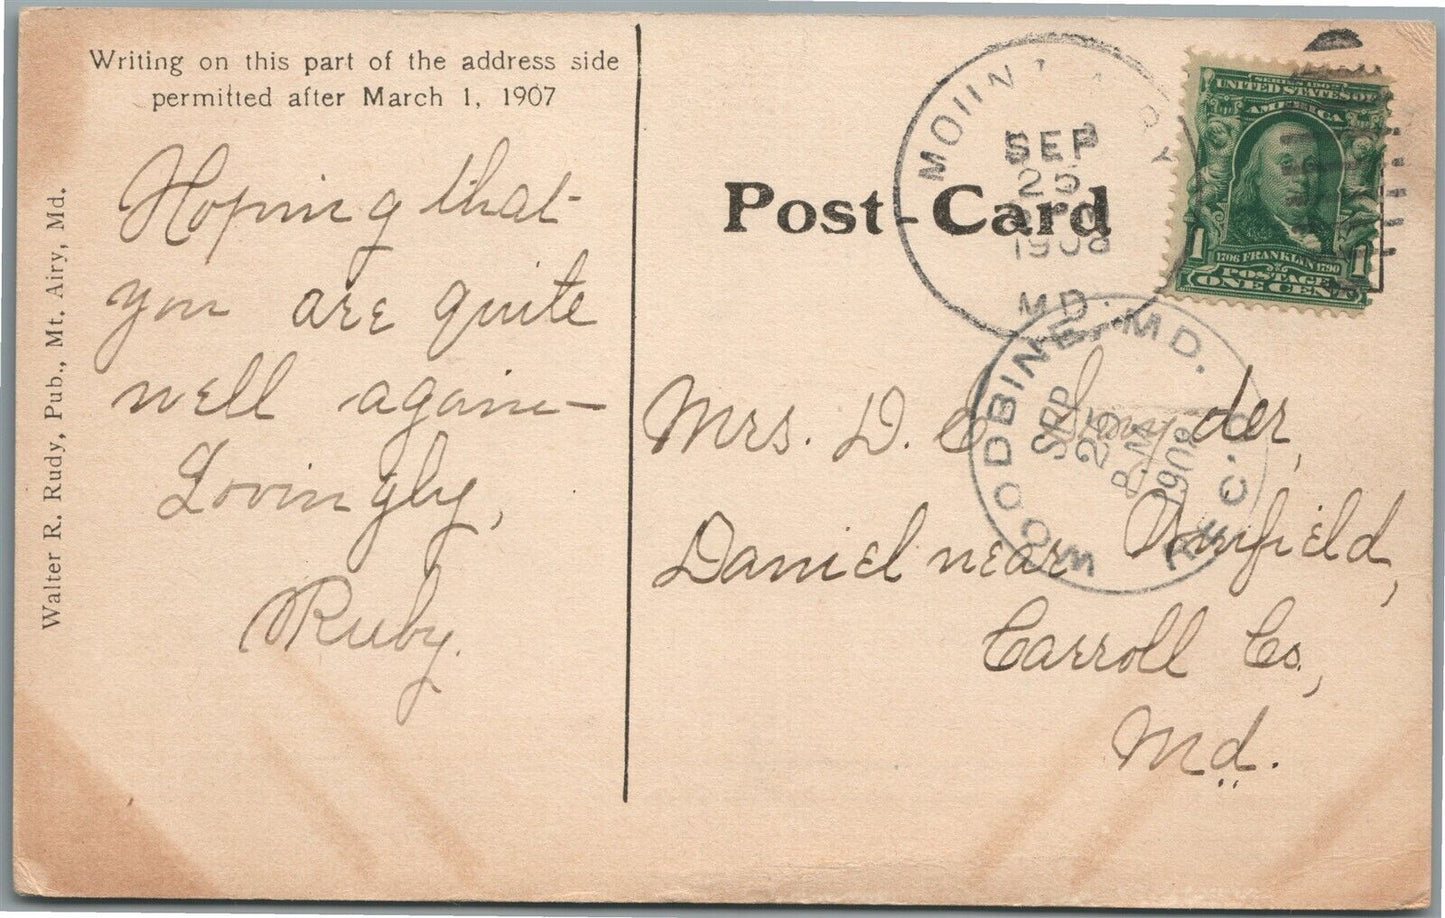 Writing on this part of the address side
permitted after March 1, 1907
Hoping that
you are quite
well again —
Lovingly,
Ruby.
Walter R. Rudy, Pub., Mt. Airy, Md.
Post-Card
SEP
25
1908
MD.
SERIES 1902
UNITED STATES OF
AMERICA
1706 FRANKLIN 1790
1 1
POSTAGE
ONE CENT
WOODBINE, MD.
SEP
25
P.M.
1908
REC'D
Mrs. D. E. Snyder,
Daniel near Winfield,
Carroll Co.,
Md.